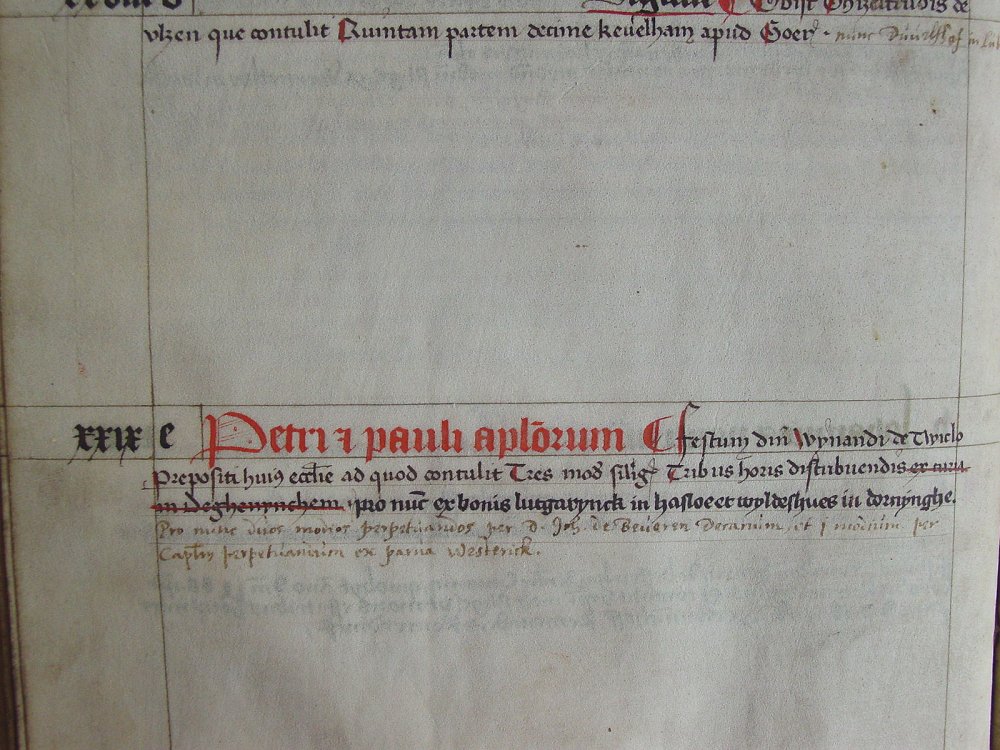 vlzen que contulit Quintam partem decime kevelham apud Goer. nunc
xxix e Petri ⁊ pauli aplōrum ¶ ffestum dni Wynandi de Twiclo
Prepositi huius ecclie ad quod contulit Tres mod silig Tribus horis distribuendis ex curia
in Deghenynchem. pro nūc ex bonis lutgarynck in hasloe et wyldeshues in dornynghe.
Pro nunc duos modios perpetuandos per D. Joh. de Beveren Decanum, et j modium per
Captm perpetuandum ex parva Westerick.